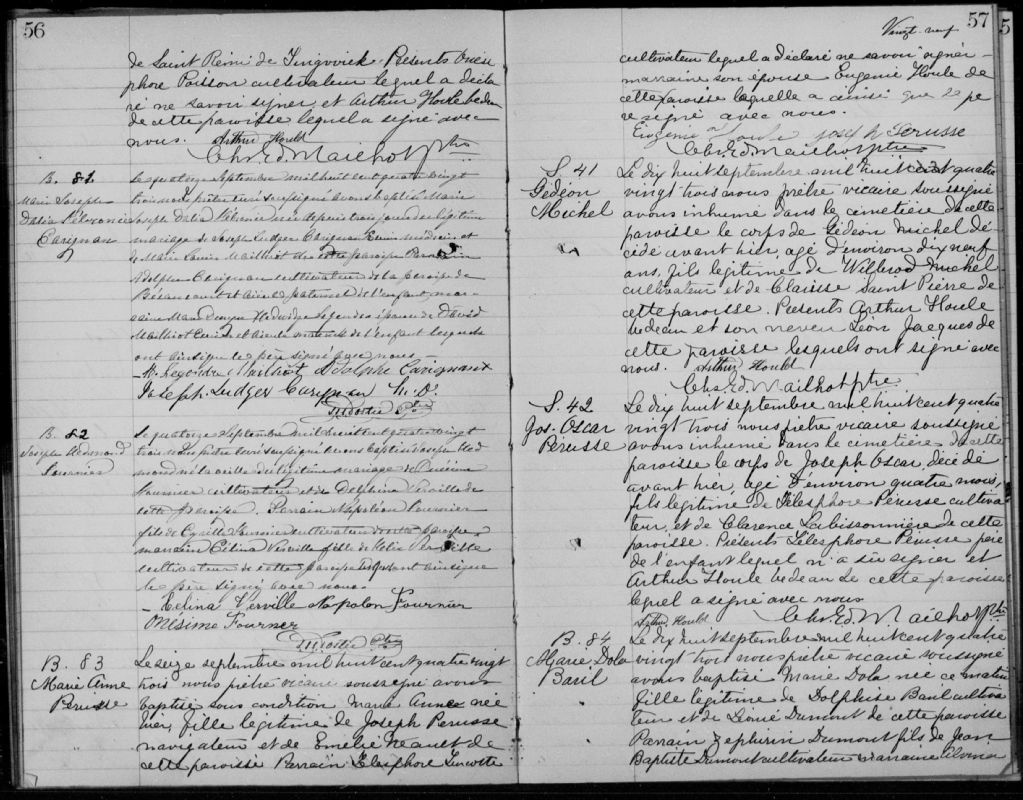 56
de Saint Rémi de Tingwick. Présents Onesi
phore Poisson cultivateur lequel a décla
ré ne savoir signer et Arthur Houle bedeau
de cette paroisse lequel a signé avec
nous. Arthur Hould
Chs. Ed. Mailhot Ptre
B. 81
Marie Joseph
Dalia
Carignan
Le quatorze Septembre mil huit cent quatre vingt
trois nous prêtre curé soussigné avons baptisé Marie
Joseph Dalia née depuis trois jours du légitime
mariage de Joseph Ludger Carignan médecin et
de Marie Mailhot de cette paroisse Parrain
Adolphe Carignan cultivateur de la Paroisse de
Bécancourt et aïeul paternel de l'enfant mar
raine Marie Hedwidge épouse de David
Mailhot et aïeule maternelle de l'enfant lesquels
ont ainsi que le père signé avec nous
Mailhot Adolphe Carignan
Joseph Ludger Carignan M. D.
Ptre
B. 82
Joseph Hedmond
Fournier
Le quatorze Septembre mil huit cent quatre vingt
trois nous prêtre curé soussigné avons baptisé Joseph Hed
mond né la veille du légitime mariage de Onésime
Fournier cultivateur et de Delphine Verville de
cette paroisse. Parrain Napoléon Fournier
fils de Cyrille Fournier cultivateur de cette paroisse
marraine Célina Verville fille de Verville
cultivateur de cette paroisse ainsi que
le père signé avec nous
Celina Verville Napolon Fournier
Onesime Fournier
Ptre
B. 83
Marie Anne
Perusse
Le seize septembre mil huit cent quatre vingt
trois nous prêtre vicaire soussigné avons
baptisé sous condition Marie Anne née
hier, fille legitime de Joseph Perusse
navigateur et de Emélie de
cette paroisse Parrain Elesphore Turcotte
Vingt-neuf
57
cultivateur lequel a déclaré ne savoir signer
marraine son épouse Eugénie Houle de
cette paroisse laquelle a ainsi que le pè
re signé avec nous.
Eugenie Houle Joseph Perusse
Chs. Ed. Mailhot Ptre
S. 41
Gédéon
Michel
Le dix huit septembre mil huit cent quatre
vingt trois nous prêtre vicaire soussigné
avons inhumé dans le cimetière de cette
paroisse le corps de Gédéon Michel dé
cédé avant hier, agé d'environ dix neuf
ans, fils legitime de Wilbrod Michel
cultivateur et de Clarisse Saint Pierre de
cette paroisse. Présents Arthur Houle
bedeau et son neveu Léon Jacques de
cette paroisse lesquels ont signé avec
nous. Arthur Hould
Chs. Ed. Mailhot Ptre
S. 42
Jos. Oscar
Pérusse
Le dix huit septembre mil huit cent quatre
vingt trois nous prêtre vicaire soussigné
avons inhumé dans le cimetière de cette
paroisse le corps de Joseph Oscar, décédé
avant hier, agé d'environ quatre mois,
fils legitime de Télesphore Perusse cultiva
teur, et de Clarence Labissonnière de cette
paroisse. Présents Télesphore Perusse père
de l'enfant lequel n'a su signer et
Arthur Houle bedeau de cette paroisse
lequel a signé avec nous
Arthur Hould Chs. Ed. Mailhot Ptre
B. 84
Marie Dola
Baril
Le dix huit septembre mil huit cent quatre
vingt trois nous prêtre vicaire soussigné
avons baptisé Marie Dola née ce matin
fille legitime de Dolphise Baril cultiva
teur et de Dumont de cette paroisse
Parrain Zephirin Dumont fils de Jean
Baptiste Dumont cultivateur marraine